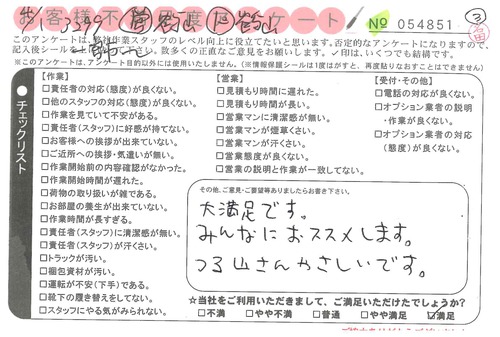 お客様不満足度アンケート
No 054851
このアンケートは、弊社作業スタッフのレベル向上に役立てたいと思います。否定的なアンケートになりますので、
記入後シールを
敦多くの正直なご意見をお願い致します。✓印は、いくつでも結構です。
※このアンケートは、アンケート目的以外には使用いたしません。(※情報保護シールは1度がすと、再度貼りなおすことはできません)
チェックリスト
【作業】
□責任者の対応(態度)が良くない。
□他のスタッフの対応(態度)が良くない。
□作業を見ていて不安がある。
□責任者(スタッフ)に好感が持てない。
□お客様への挨拶が出来ていない。
□ご近所への挨拶・気遣いが無い。
□作業開始前の内容確認がなかった。
□作業開始時間が遅れた。
□荷物の取り扱いが雑である。
□お部屋の養生が出来ていない。
□作業時間が長すぎる。
□責任者(スタッフ)に清潔感が無い。
□責任者(スタッフ)が汗くさい。
□トラックが汚い。
□梱包資材が汚い。
□運転が不安(下手)である。
□靴下の履き替えをしてない。
□スタッフにやる気がみられない。
【営業】
□見積もり時間に遅れた。
□見積もり時間が長い。
□営業マンに清潔感が無い。
□営業マンが煙草くさい。
□営業マンが汗くさい。
□営業態度が良くない。
□営業の説明と作業が一致してない。
【受付・その他】
□電話の対応が良くない。
□オプション業者の説明
・作業が良くない。
□オプション業者の対応
(態度)が良くない。
その他、ご意見・ご要望等ありましたらお書き下さい。
大満足です。
みんなにおススメします。
つる山さんやさしいです。
☆当社をご利用いただきまして、ご満足いただけたでしょうか?
□不満 □やや不満 □普通 □やや満足 ☑満足